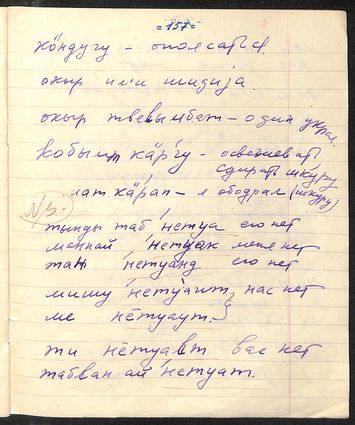 = 157 =
кӧндугу – опоясаться
окыр или шидија.
окыр твевымбат – один украл
кобым кӓргу – освежевать
сдирать шкуру
мат кӓрап – я ободрал (шкуру)
N/3:-
тынды таб 'нетуа его нет
маннай 'нетуак меня нет
тан 'нетуанд его нет
мишу 'нетуаит, нас нет
ме нётуаут.
ти нётуавт вас нет
табван ай 'нетуат.